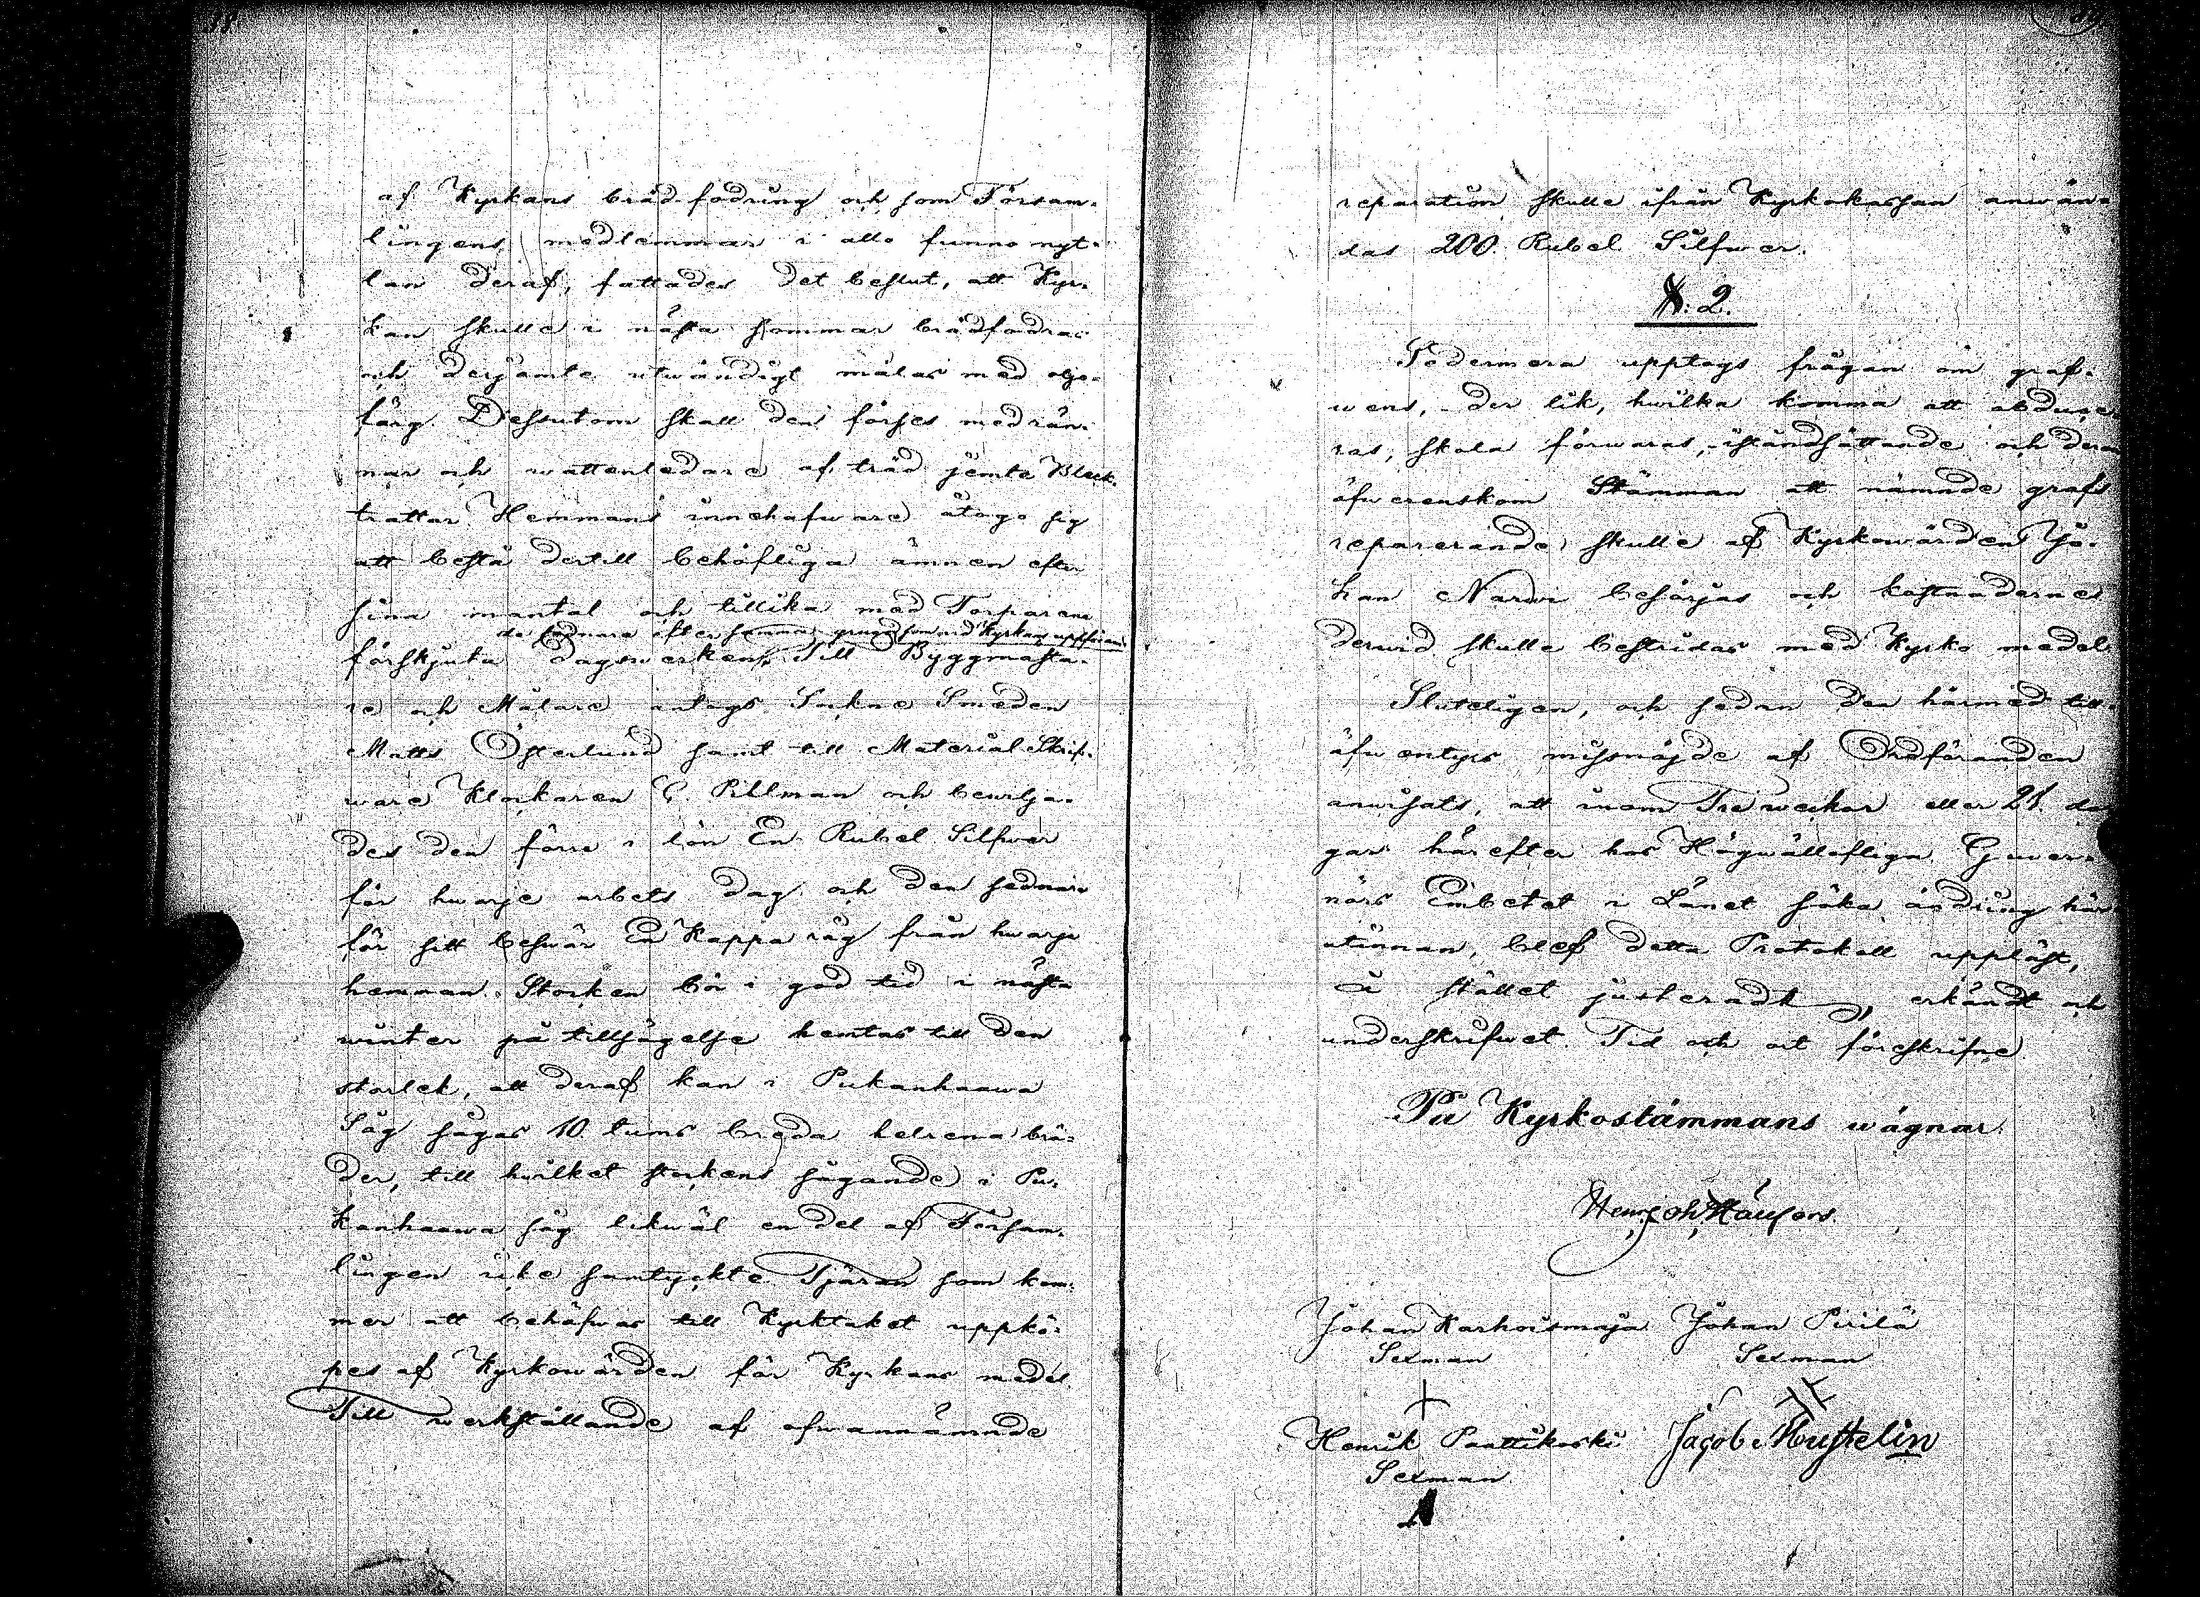 af Kyrkans brädfodring och som Försam-
lingens medlemmar i allo funno nyt-
tan deraf, fattades det beslut, att Kyr-
kan skulle i nästa sommar brädfodras
och derjämte utwändigt målas med olje-
färg. Dessutom skall den förses med rän-
nor och wattenledare af träd jemte Bleck-
trattar. Hemmans innehafware åtogo sig
att bestå dertill behöfliga ämnen efter
sina mantal och tillika med Torparena
de sednare efter samma grund som wid Kyrkans uppföran
förskjuta dagswerken. Till Byggmästa-
re och Målare antogs Sockne Smeden
Matts Österlund samt till Material Skrif-
ware Klockaren C. Pillman och bewilja-
des den förre i lön En Rubel Silfwer
för hwarje arbets dag och den sednare
för sitt beswär En Kappa råg från hwarje
hemman. Stocken bör i god tid i nästa
winter på tillsägelse hemtas till den
storlek, att deraf kan i Pukanhaawa
Såg sågas 10 tums breda helrena brä-
der, till hwilket stockens sågande i Pu-
kanhaawa såg likwäl en del af Försam-
lingen icke samtyckte. Tjäran som kom-
mer att behöfwas till Kyrktaket uppkö-
pes af Kyrkowärden för Kyrkans medel
Till werkställande af ofwannämnde
reparation skulle ifrån Kyrkokassan anwän-
das 200. Rubel Silfwer.
§. 2.
Sedermera upptogs frågan om graf-
wens, der lik, hwilka komma att obduce-
ras, skola förwaras, iståndsättande och derom
öfwerenskom Stämman att nämnde grafs
reparerande skulle af Kyrkowärden Jo-
han Narwi besörjas och kostnaderne
derwid skulle bestridas med Kyrko medel
Sluteligen, och sedan den härmed till-
äfwentyrs missnöjde af Ordföranden
anwisats, att inom Tre weckor eller 21 da-
gar härefter hos Högwällofliga Guver-
nörs Embetet i Länet söka ändring här-
utinnan, blef detta Protokoll uppläst,
å stället justeradt, erkändt och
underskrifwet. Tid och ort föreskrifne
På Kyrkostämmans wägnar.
Johan Karhoismaja Johan Pirilä
Sexman Sexman
Henrik Panttikoski Jacob Hustelin
Sexman